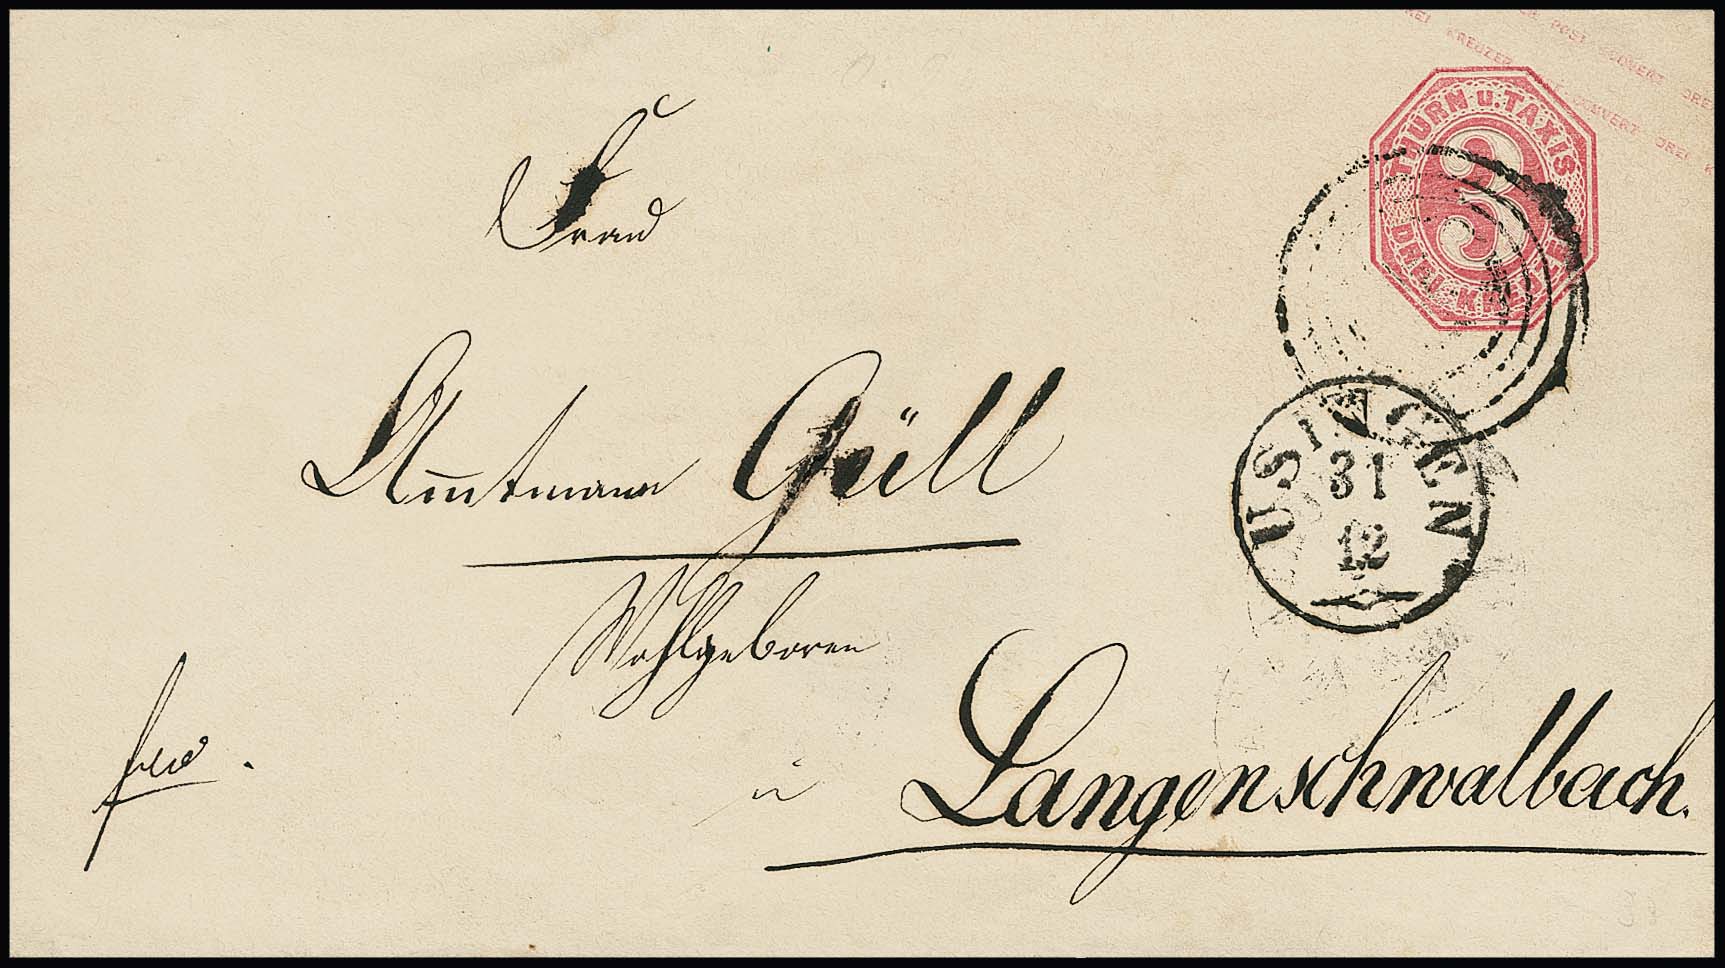 DREI KREUZER POST COUVERT DREI K
POST COUVERT DREI
THURN U. TAXIS
3
DREI KREUZER
Frau
Amtmann Güll
Wohlgeboren
USINGEN
31
12
fro.
in
Langenschwalbach.